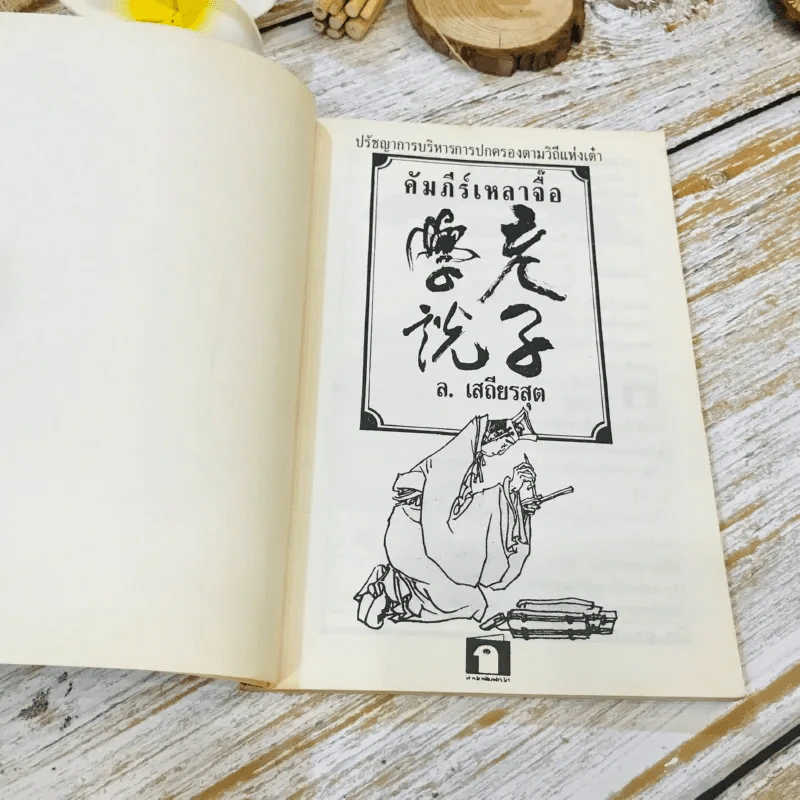 ปรัชญาการบริหารการปกครองตามวิถีแห่งเต๋า
คัมภีร์เหลาจื๊อ
老子
學説
ล. เสถียรสุต
ก